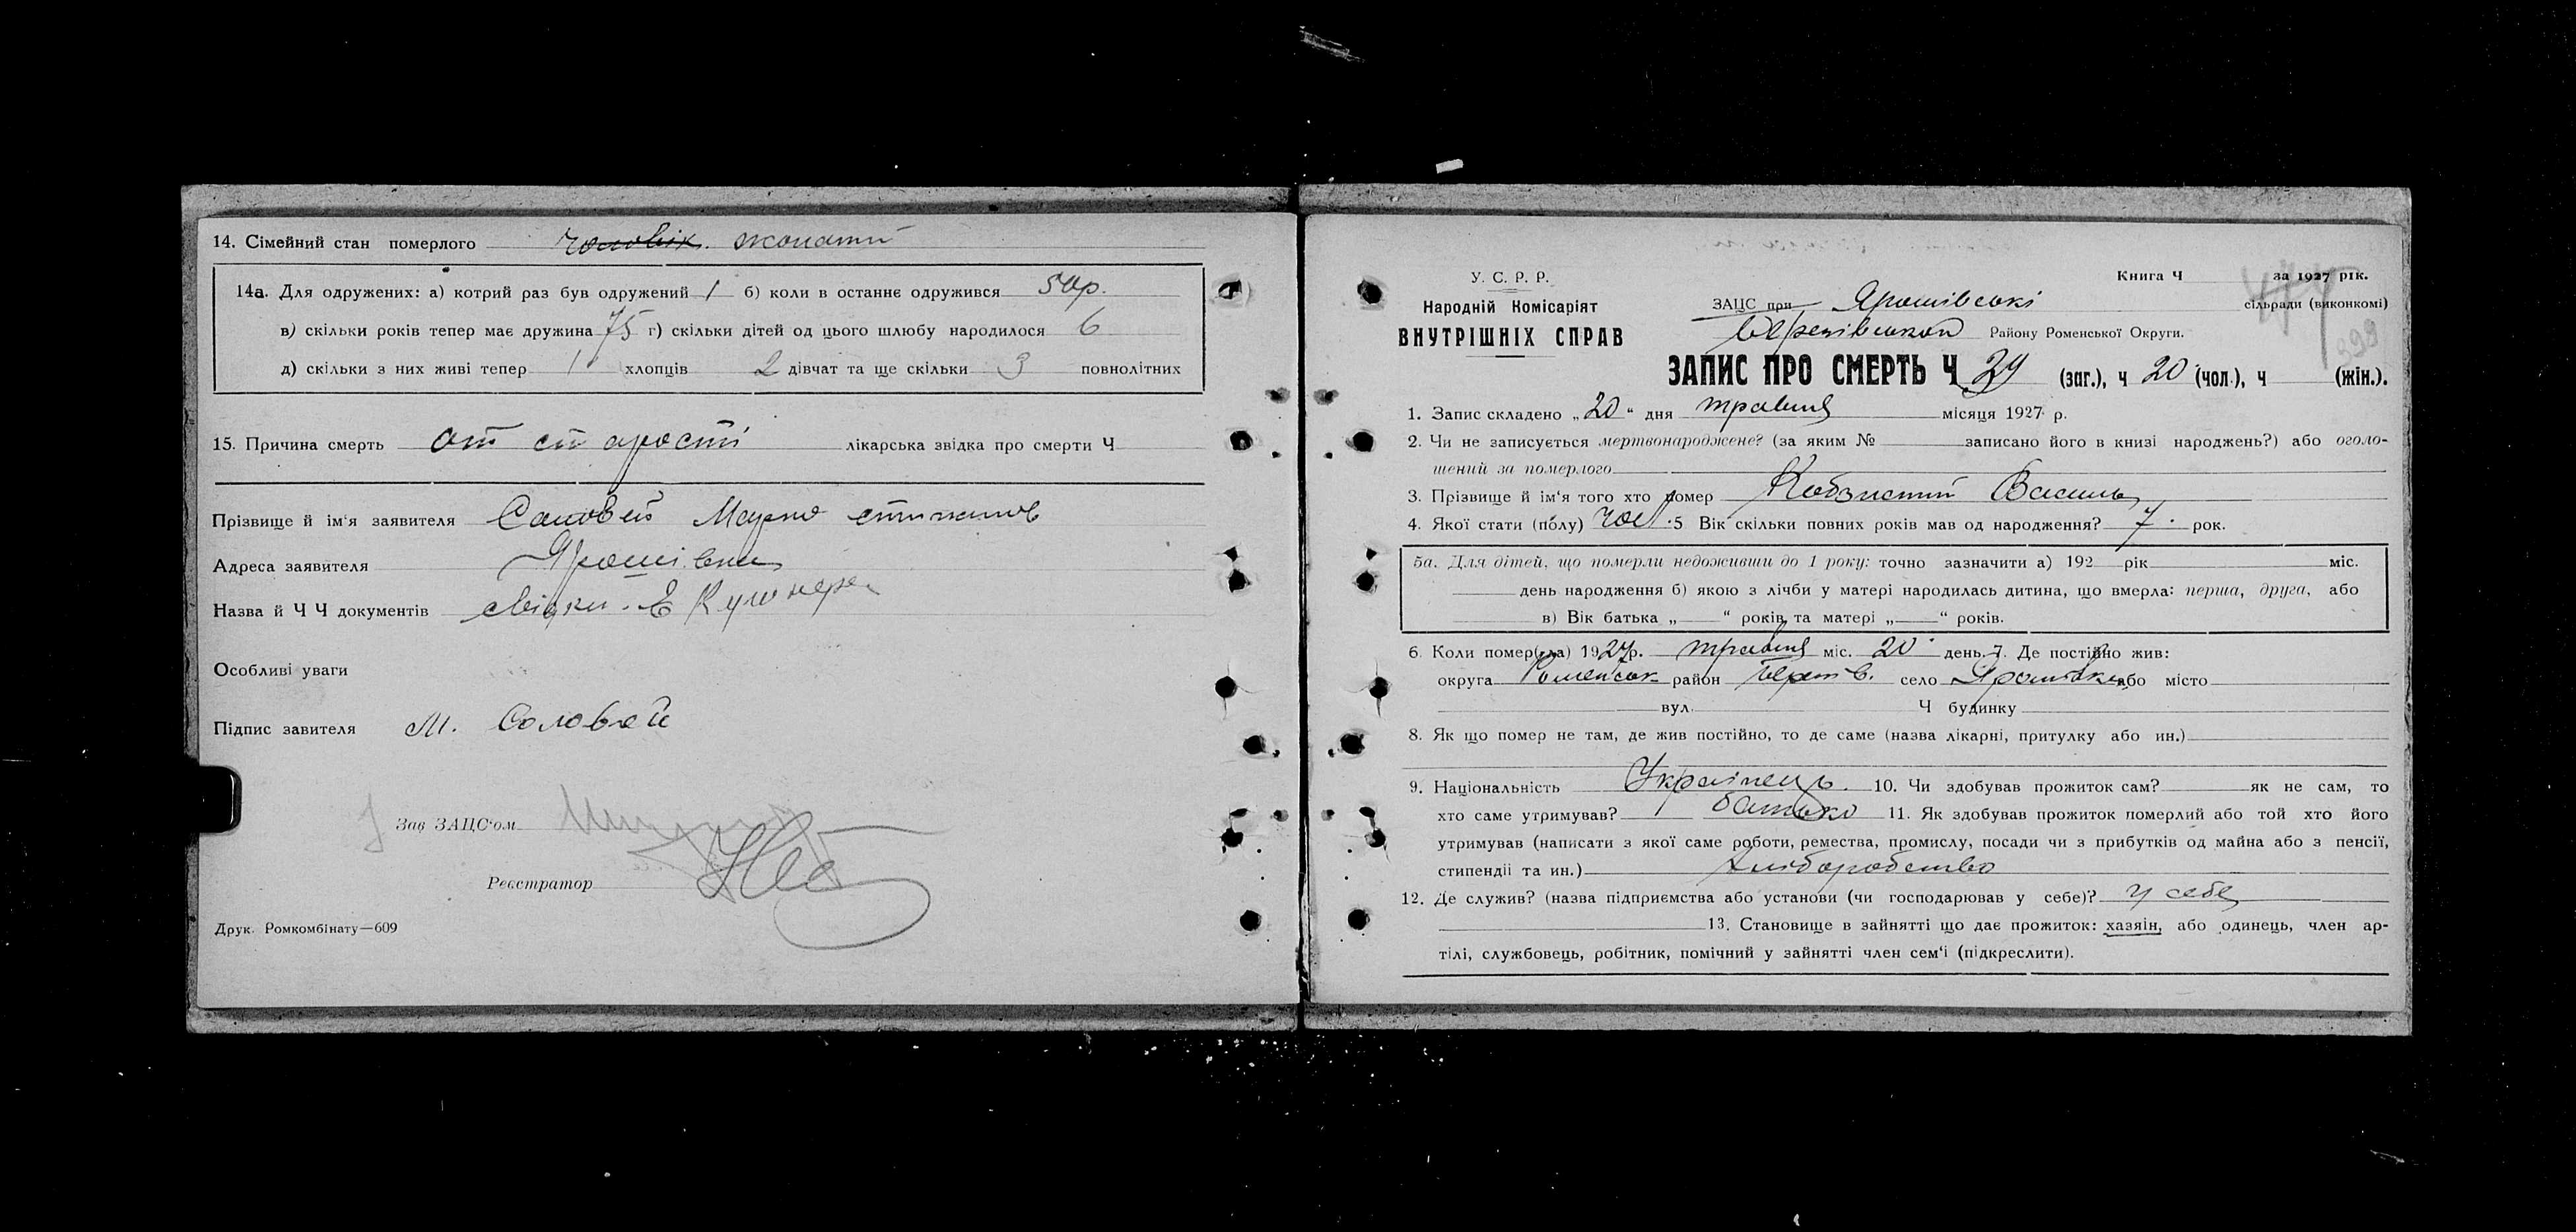 14. Сімейний стан померлого чоловік. жонатий
14а. Для одружених: а) котрий раз був одружений 1 б) коли в останнє одружився 50р.
в) скільки років тепер має дружина 75 г) скільки дітей од цього шлюбу народилося 6
д) скільки з них живі тепер 1 хлопців 2 дівчат та ще скільки 3 повнолітних
15. Причина смерть от старості лікарська звідка про смерти Ч
Прізвище й ім'я заявителя Соловей Марко
Адреса заявителя Ярошівка
Назва й Ч Ч документів свідки. Е Кушнере
Особливі уваги
Підпис завителя М. Соловей
Зав ЗАЦС'ом
Реєстратор
Друк. Ромкомбінату—609
У. С. Р. Р.
Народній Комісаріят
ВНУТРІШНІХ СПРАВ
Книга Ч за 1927 рік.
ЗАЦС при Ярошівські сільради (виконкомі)
Району Роменської Округи.
399
ЗАПИС ПРО СМЕРТЬ Ч 29 (заг.), ч 20 (чол.), ч (жін.).
1. Запис складено „20" дня травня місяця 1927 р.
2. Чи не записується мертвонароджене? (за яким № записано його в книзі народжень?) або оголо-
шений за померлого
3. Прізвище й ім'я того хто помер Кобзистий Василь
4. Якої стати (полу) чол. 5 Вік скільки повних років мав од народження? 7. рок.
5а. Для дітей, що померли недоживши до 1 року: точно зазначити а) 192 рік міс.
день народження б) якою з лічби у матері народилась дитина, що вмерла: перша, друга, або
в) Вік батька „ " років та матері „ " років.
6. Коли помер(ла) 1927р. травня міс. 20 день. 7. Де постійно жив:
округа Роменськ район село Ярошівка або місто
вул. Ч будинку
8. Як що помер не там, де жив постійно, то де саме (назва лікарні, притулку або ин.)
9. Національність Українець. 10. Чи здобував прожиток сам? як не сам, то
хто саме утримував? батько 11. Як здобував прожиток померлий або той хто його
утримував (написати з якої саме роботи, ремества, промислу, посади чи з прибутків од майна або з пенсії,
стипендії та ин.) хліборобство
12. Де служив? (назва підприємства або установи (чи господарював у себе)? у себе
13. Становище в зайнятті що дає прожиток: хазяін, або одинець, член ар-
тілі, службовець, робітник, помічний у зайнятті член сем'і (підкреслити).